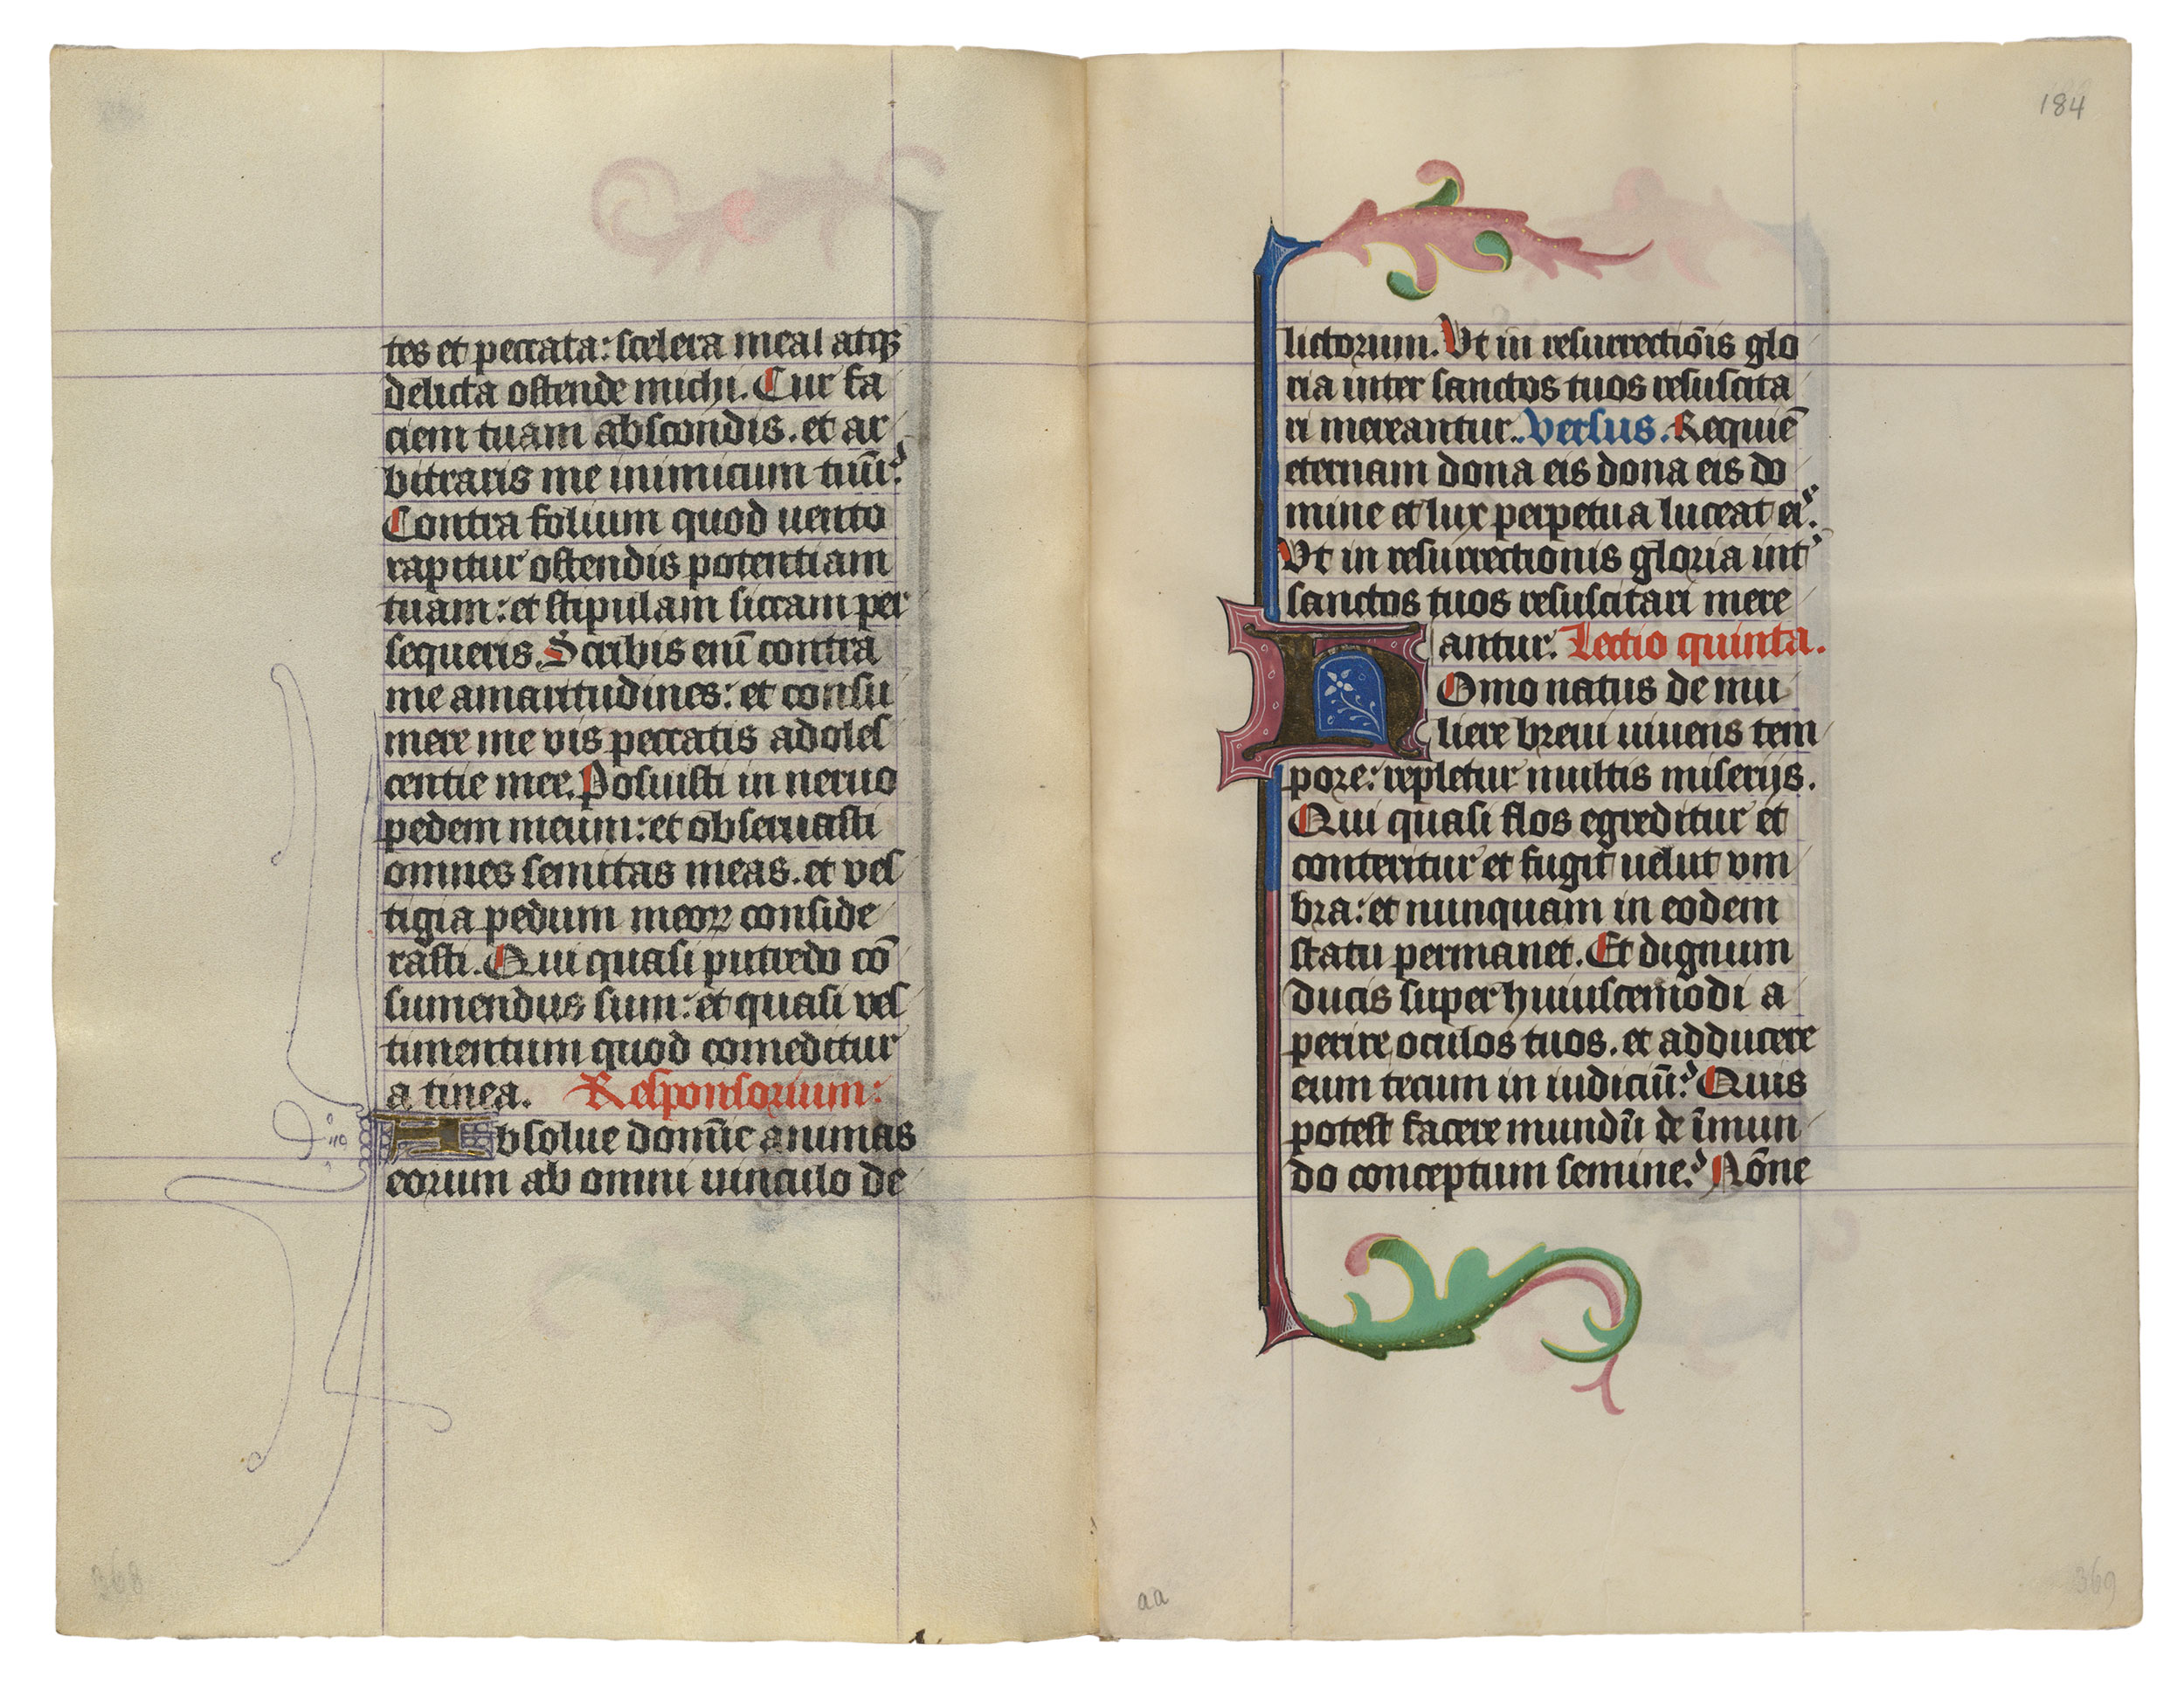 tes et peccata: scelera mea atqꝫ
delicta ostende michi. Cur fa
ciem tuam abscondis. et ar
bitraris me inimicum tuū?
Contra folium quod uento
rapitur ostendis potentiam
tuam: et stipulam siccam per
sequeris. Scribis enī contra
me amaritudines: et consu
mere me vis peccatis adoles
centie mee. Posuisti in neruo
pedem meum: et obseruasti
omnes semitas meas. et ves
tigia pedum meoꝝ conside
rasti. Qui quasi putredo cō
sumendus sum: et quasi ves
timentum quod comeditur
a tinea. Responsorium:
Absolue domīe animas
eorum ab omni uinculo de
368
184
lictorum. Vt in resurrectiōis glo
ria inter sanctos tuos resuscita
ri mereantur. Versus. Requiē
eternam dona eis dona eis do
mine et lux perpetua luceat ei.
Vt in resurrectionis gloria int
sanctos tuos resuscitari mere
antur. Lectio quinta.
HOmo natus de mu
liere breui uiuens tem
pore: repletur multis miserijs.
Qui quasi flos egreditur et
conteritur et fugit uelut vm
bra: et nunquam in eodem
statu permanet. Et dignum
ducis super huiuscemodi a
perire oculos tuos. et adducere
eum tecum in iudiciū? Quis
potest facere mundū de īmun
do conceptum semine? Nōne
aa
369